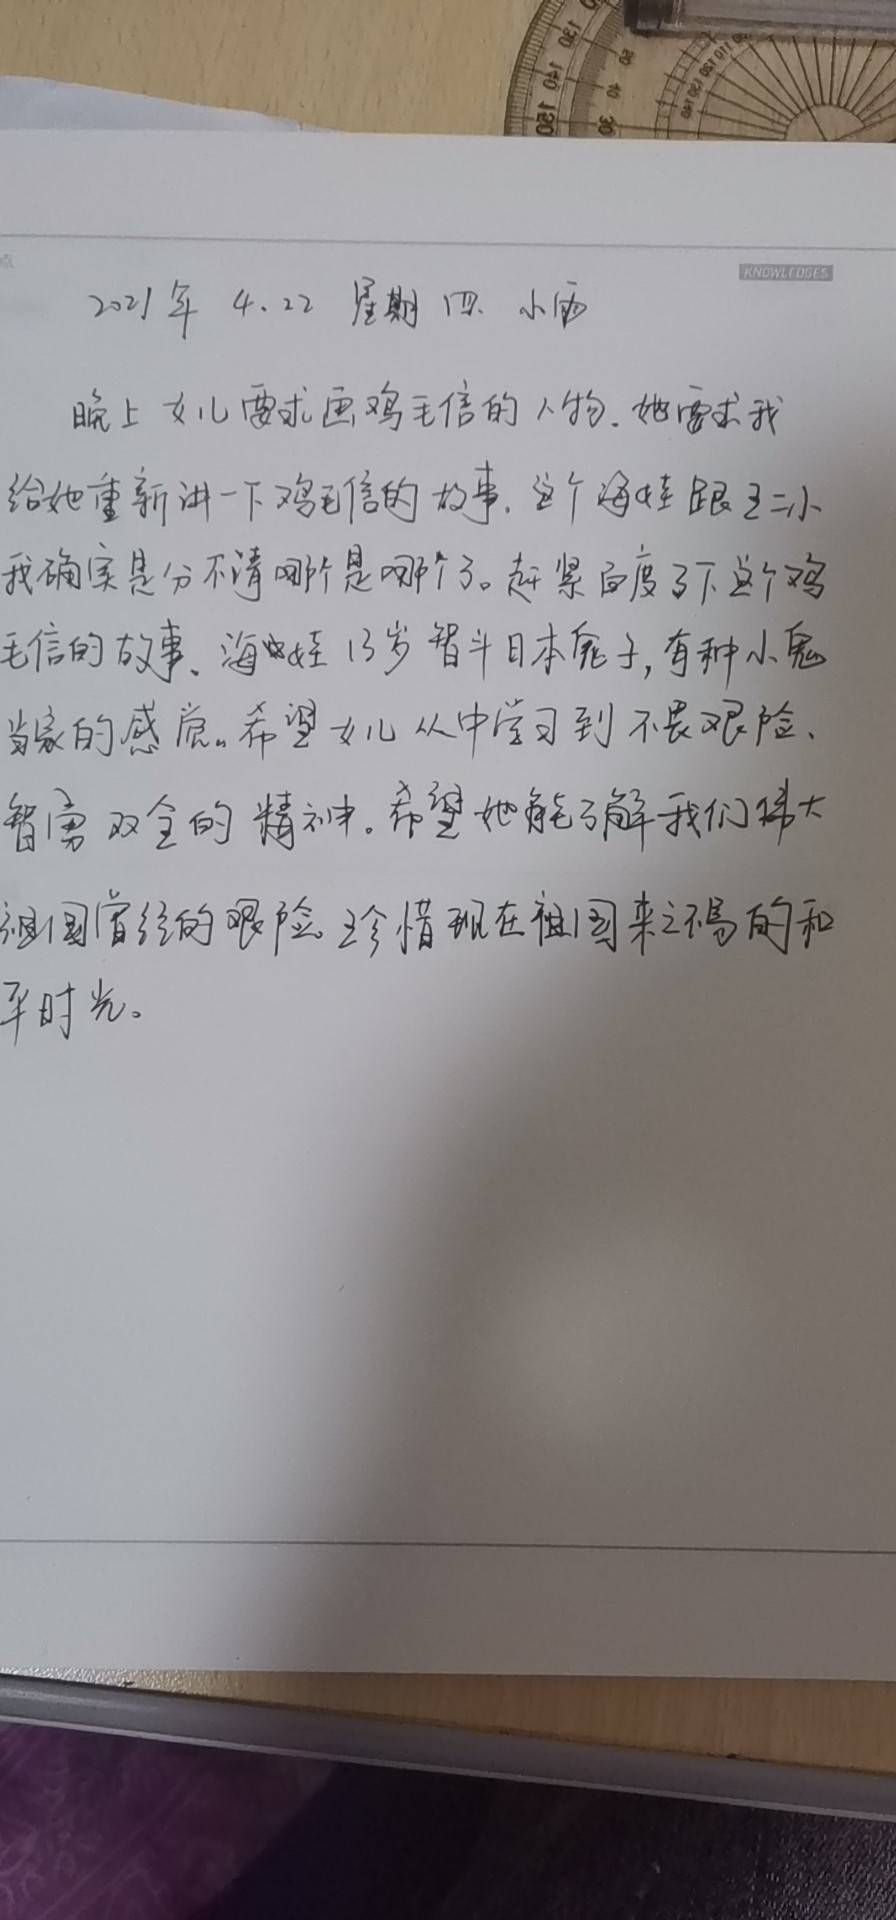 点
KNOWLEDGES
2021年 4.22 星期四. 小雨
晚上女儿要求画鸡毛信的人物.她要求我
给她重新讲一下鸡毛信的故事.这个海娃跟王二小
我确实是分不清哪个是哪个了。赶紧百度了下这个鸡
毛信的故事、海娃13岁智斗日本鬼子,有种小鬼
当家的感觉。希望女儿从中学习到不畏艰险、
智勇双全的精神。希望她能了解我们伟大
祖国曾经的艰险。珍惜现在祖国来之不易的和
平时光。